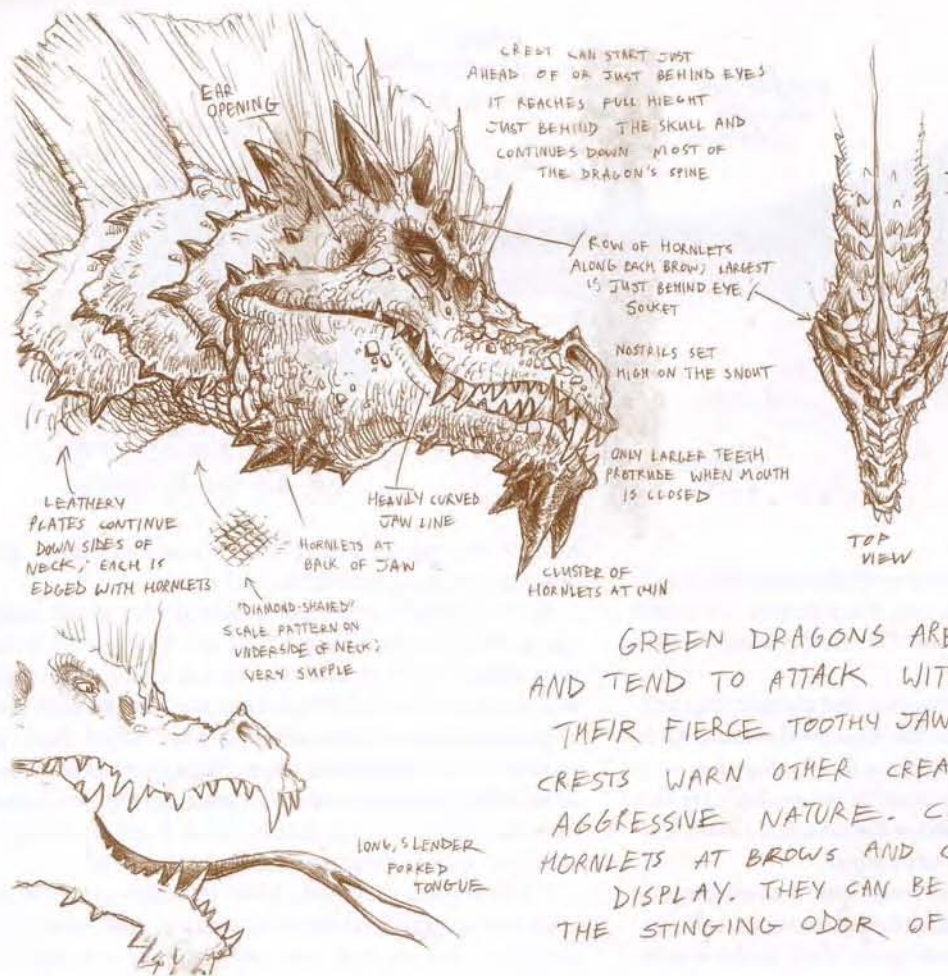 EAR
OPENING
CREST CAN START JUST
AHEAD OF OR JUST BEHIND EYES
IT REACHES FULL HIEGHT
JUST BEHIND THE SKULL AND
CONTINUES DOWN MOST OF
THE DRAGON'S SPINE
ROW OF HORNLETS
ALONG EACH BROW; LARGEST
IS JUST BEHIND EYE
SOCKET
NOSTRILS SET
HIGH ON THE SNOUT
ONLY LARGER TEETH
PROTRUDE WHEN MOUTH
IS CLOSED
TOP
VIEW
LEATHERY
PLATES CONTINUE
DOWN SIDES OF
NECK; EACH IS
EDGED WITH HORNLETS
HEAVILY CURVED
JAW LINE
HORNLETS AT
BACK OF JAW
CLUSTER OF
HORNLETS AT CHIN
"DIAMOND-SHAPED"
SCALE PATTERN ON
UNDERSIDE OF NECK;
VERY SUPPLE
LONG, SLENDER
FORKED
TONGUE
GREEN DRAGONS ARE
AND TEND TO ATTACK WIT
THEIR FIERCE TOOTHY JAW
CRESTS WARN OTHER CREA
AGGRESSIVE NATURE. C
HORNLETS AT BROWS AND C
DISPLAY. THEY CAN BE
THE STINGING ODOR OF